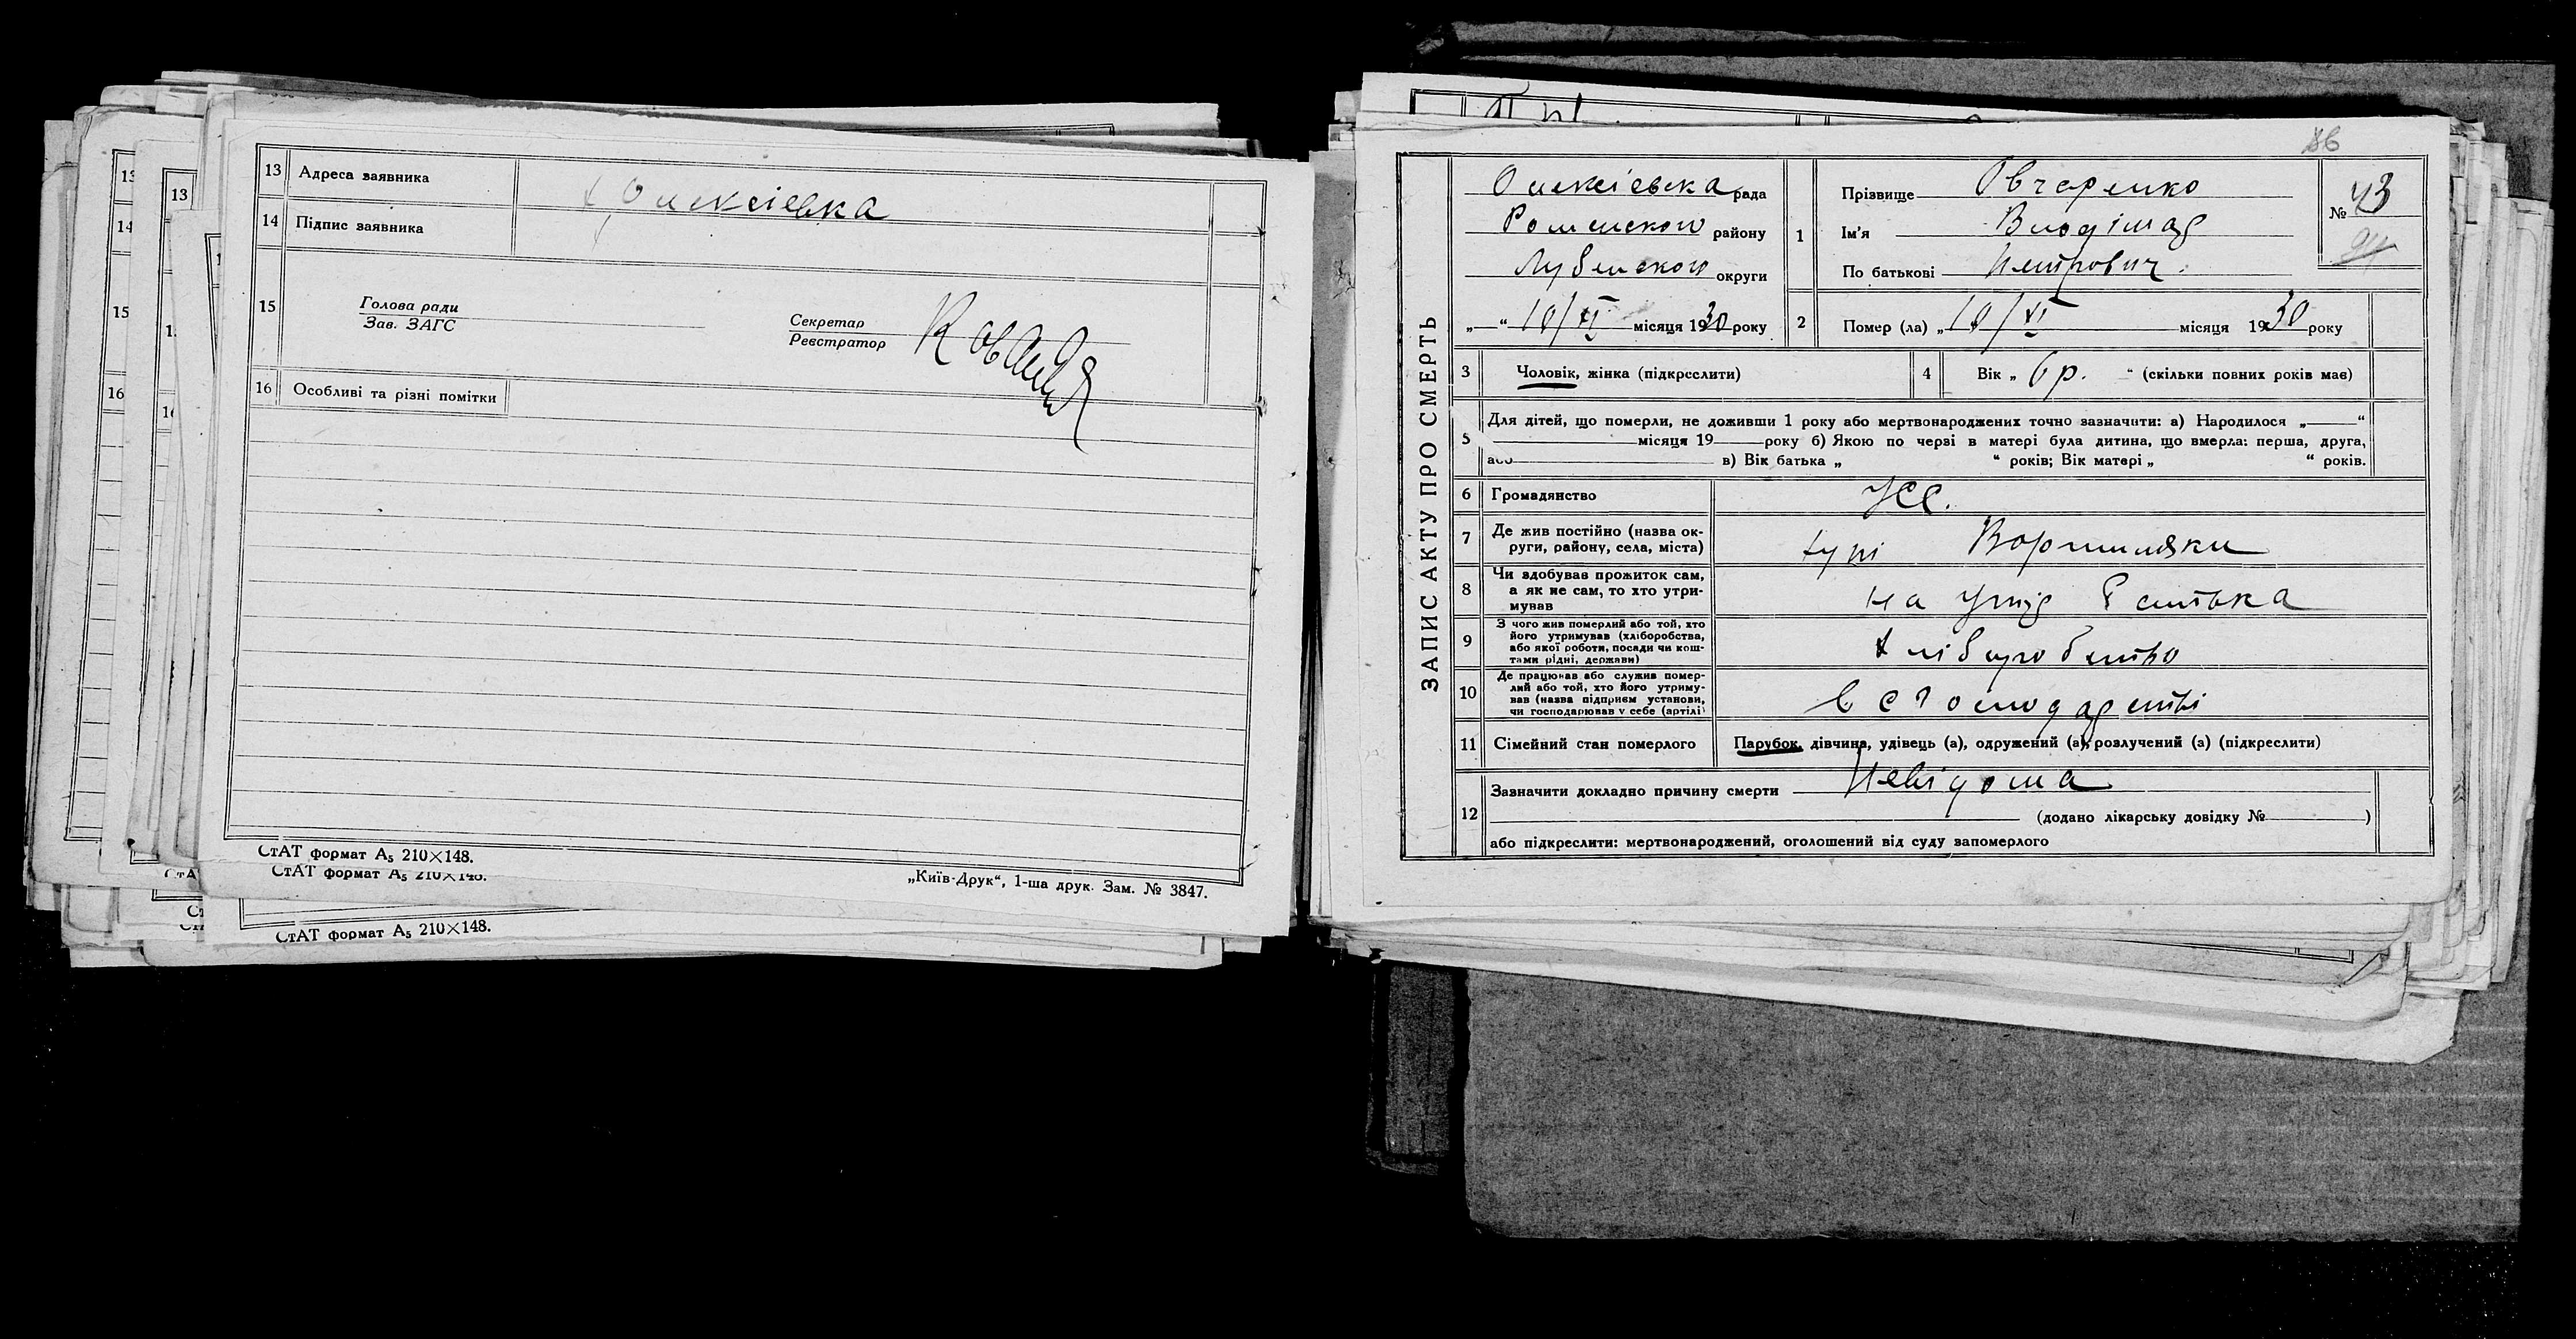 13 Адреса заявника
х. Олексіевка
14 Підпис заявника
15
Голова ради
Зав. ЗАГС
Секретар
Реєстратор
16 Особливі та різні помітки
СтАТ формат А₅ 210×148.
„Київ-Друк“, 1-ша друк. Зам. № 3847.
СтАТ формат А₅ 210×148.
СтАТ формат А₅ 210×148.
86
ЗАПИС АКТУ ПРО СМЕРТЬ
Олексіевска рада
Роменского району
Лубенского округи
„—“ 10/XI місяця 1930 року
1
Прізвище Овчаренко
Ім'я Влодімар
По батькові Петрович.
№ 43
2 Помер (ла) „10/XI місяця 1930 року
3 Чоловік, жінка (підкреслити)
4 Вік „ 6 р. “ (скільки повних років має)
5 Для дітей, що померли, не доживши 1 року або мертвонароджених точно зазначити: а) Народилося „—“
місяця 19—року б) Якою по черві в матері була дитина, що вмерла: перша, друга,
або в) Вік батька „ “ років; Вік матері „ “ років.
6 Громадянство УСС.
7 Де жив постійно (назва округи, району, села, міста)
хуті
8 Чи здобував прожиток сам, а як не сам, то хто утримував
на утр батька
9 З чого жив померлий або той, хто його утримував (хліборобства, або якої роботи, посади чи коштами рідні, держави)
хліборобство
10 Де працював або служив померлий або той, хто його утримував (назва підприєм установи, чи господарював у себе (артілі)
в с господарстві
11 Сімейний стан померлого
Парубок, дівчина, удівець (а), одружений (а), розлучений (а) (підкреслити)
12 Зазначити докладно причину смерти Невідома
(додано лікарську довідку № )
або підкреслити: мертвонароджений, оголошений від суду запомерлого